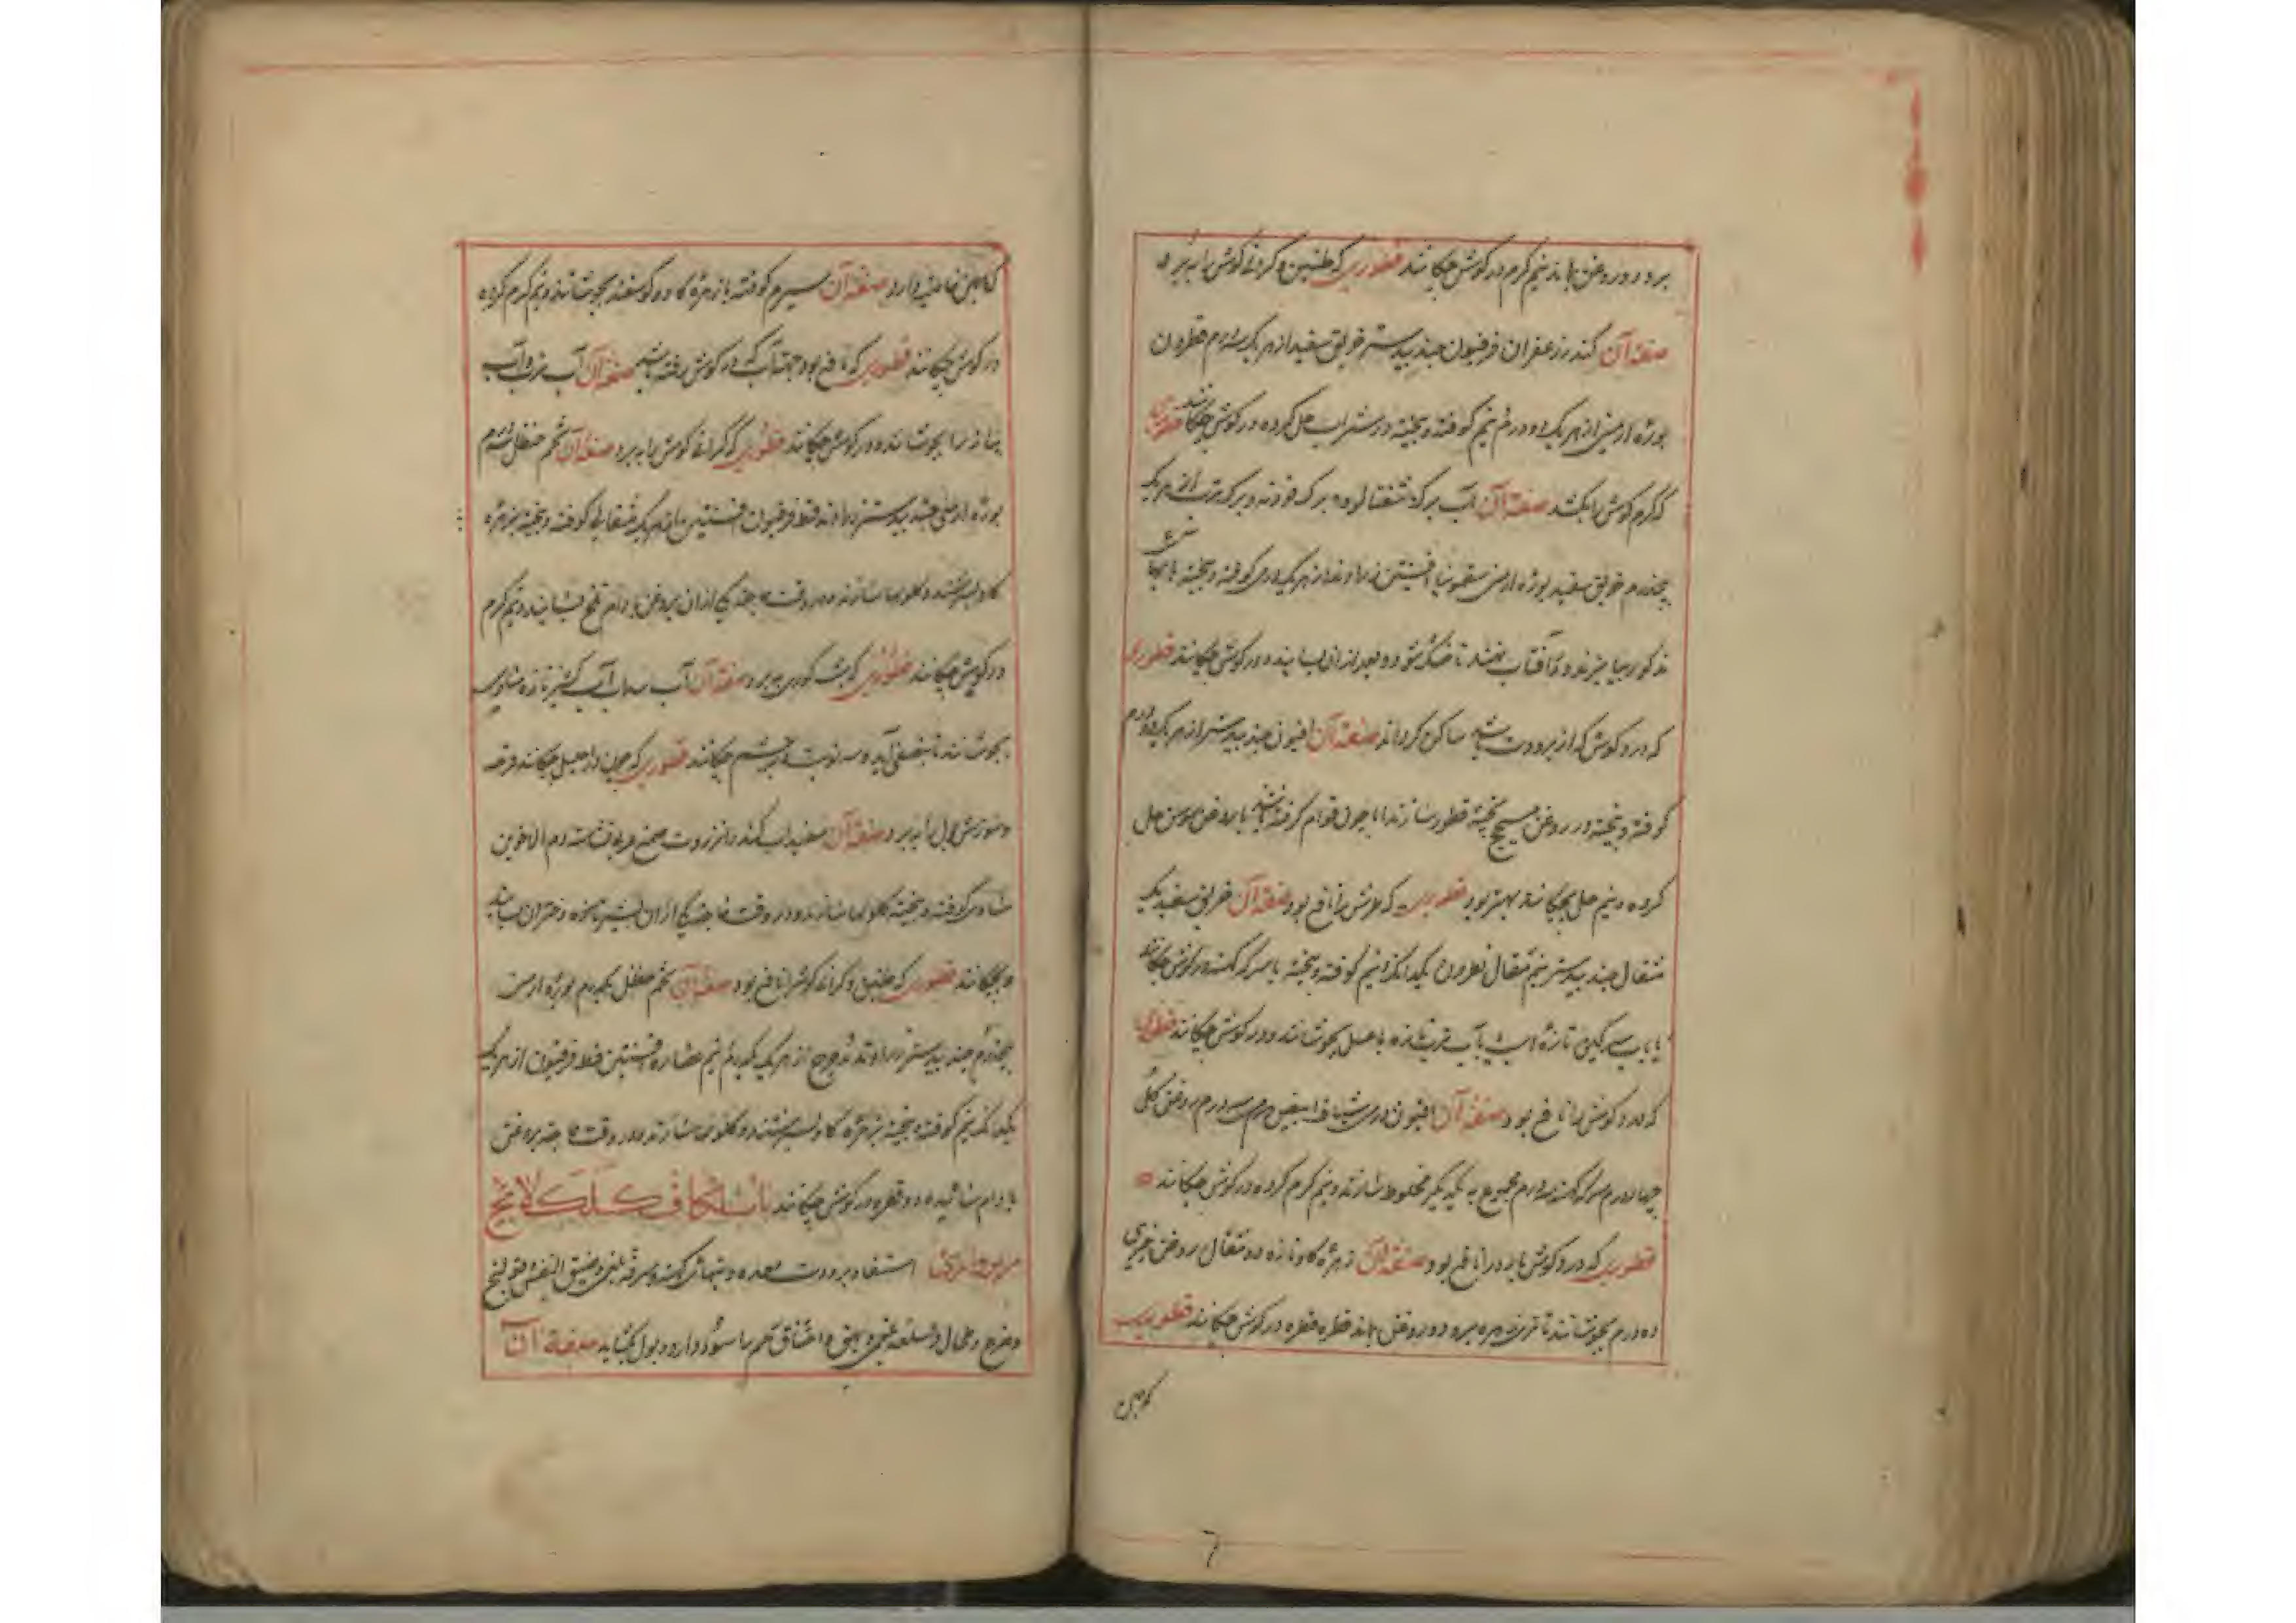 برود و روغن بماند نیم گرم در گوش چکانند قطوری که طنین و گرانی گوش را ببرد
صفة آن کندر زعفران فرفیون جندبیدستر خربق سفید از هر یک سه درم
بوره ارمنی از هر یک دو درم نیم کوفته و بیخته در شراب حل کرده در گوش چکانند قطوری
که کرم گوش را بکشد صفة آن آب برگ شفتالو و برگ فودنه و برگ ترب از هر یک
پنجدرم خربق سفید بوره ارمنی سقمونیا افسنتین زراوند از هر یک درمی کوفته و بیخته با آبها
مذکور بیامیزند و در آفتاب نهند تا خشک شود و بعد از آن بسایند و در گوش چکانند قطوری
که درد گوش که از برودت باشد ساکن گرداند صفة آن افیون جندبیدستر از هر یک دو درم
کوفته و بیخته در روغن پخته قطور سازند اما چون قوام گرفته باشد با روغن سوسن حل
کرده و نیم چکانند بهتر بود قطوری که کرش را نافع بود صفة آن خربق سفید یک
مثقال جندبیدستر نیم مثقال نطرون یکدانگ و نیم کوفته و بیخته با سرکه کهنه در گوش چکانند
یا بآب سرگین تازه اسب یا آب ترب تازه با عسل بجوشانند و در گوش چکانند قطوری
که درد گوش را نافع بود صفة آن افیون درمی شیاف ابیض درم سه درم روغن گل
چهار درم سرکه کهنه سه درم مجموع به یکدیگر مخلوط سازند و نیم گرم کرده در گوش چکانند
قطوری که درد گوش بارد را نافع بود صفة آن زهره گاو تازه دو مثقال روغن خیری
ده درم بجوشانند تا زهره برود و روغن بماند قطره قطره در گوش چکانند قطوری
که همین
که همین خاصیت دارد صفة آن سیر کوفته با زهره گاو و گوسفند بجوشانند و نیم گرم کرده
در گوش چکانند قطوری که نافع بود جهت آب که در گوش رفته باشد صفة آن آب ترب و آب
پیاز را بجوشانند و در گوش چکانند قطوری که گرانی گوش را ببرد صفة آن تخم حنظل سه درم
بوره ارمنی جندبیدستر زراوند قسط فرفیون افسنتین از هر یک مثقالی کوفته و بیخته بزهره
گاو بسرشند و گلولها سازند و در وقت حاجت یکی از آن بروغن بادام تلخ بسایند و نیم گرم
در گوش چکانند قطوری که شب کوری ببرد صفة آن آب سداب آب گشنیز تازه مساوی
بجوشانند تا بنصفی آید و سه نوبت در چشم چکانند قطوری که چون در احلیل چکانند قرحه
و سوزش بول را ببرد صفة آن سفیداب کندر انزروت صمغ عربی دم الاخوین
مساوی کوفته و بیخته گلولها سازند و در وقت حاجت یکی از آن بشیر تازه دختران بسایند
و بچکانند قطوری که طنین و گرانی گوش را نافع بود صفة آن تخم حنظل یکدرم بوره ارمنی
پنجدرم جندبیدستر زراوند مدحرج از هر یک یکدرم نیم عصاره افسنتین قسط فرفیون از هر یک
یکدانگ نیم کوفته و بیخته بزهره گاو بسرشند و گلولها سازند و در وقت حاجت بروغن
بادام سائیده دو قطره در گوش چکانند باب الکاف کلکلانج
استسقا و برودت معده و تبهای کهنه و سرفه بلغمی و ضیق النفس و قولنج
و طحال و بهق و اختناق رحم را سود دارد و بول بگشاید صفة آن